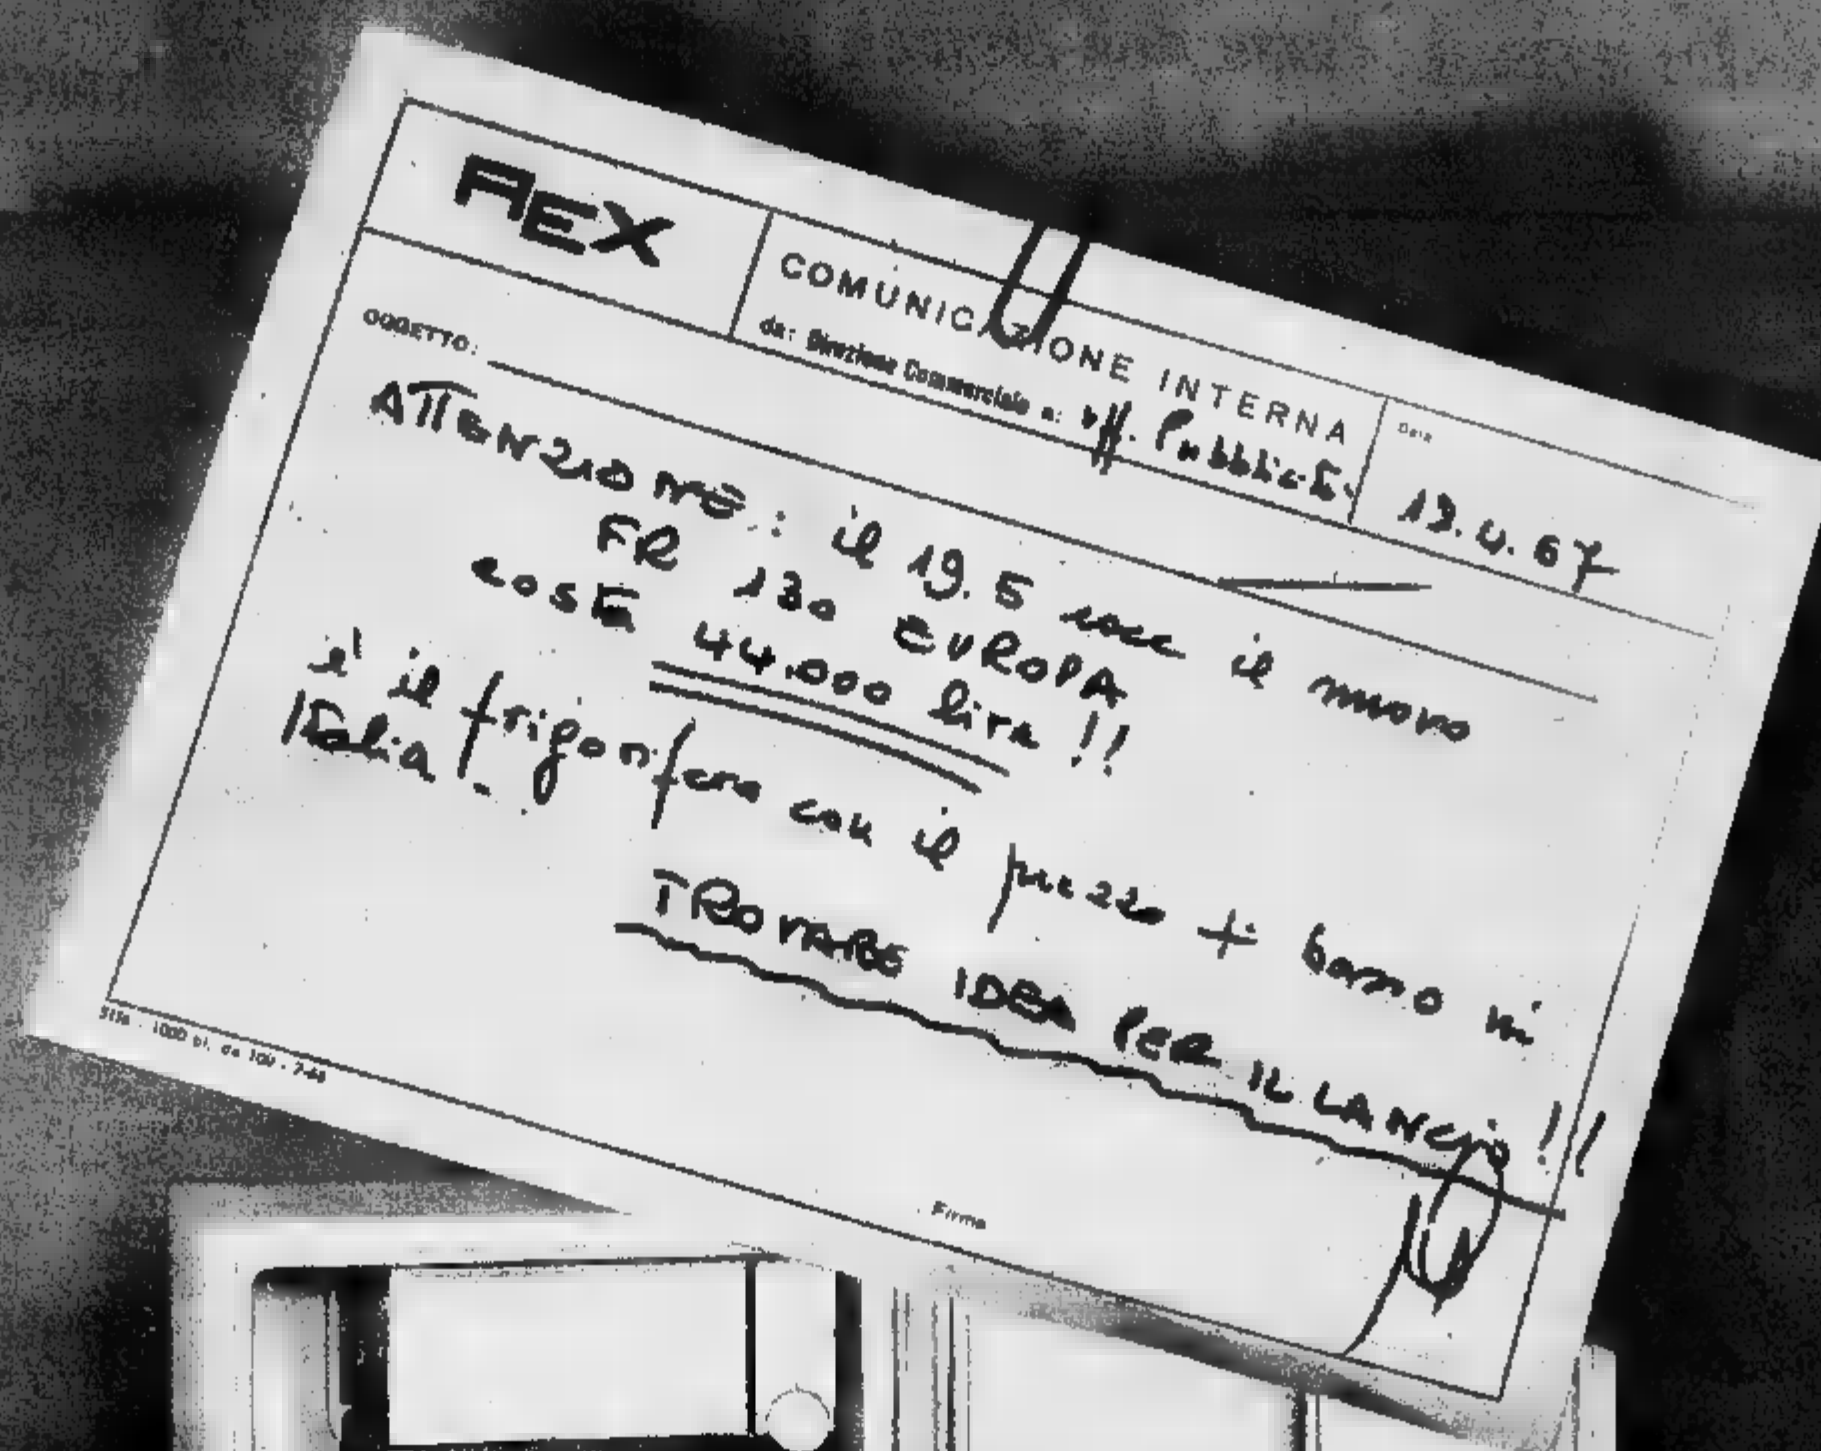 REX
COMUNICAZIONE INTERNA
da: Direzione Commerciale a: Uff. Pubblicità
Data
13.4.67
OGGETTO:
ATTENZIONE: il 19.5 esce il nuovo
FR 130 EUROPA
costa 44.000 lire!!
e' il frigorifero con il prezzo + basso in
Italia.
TROVARE IDEA PER IL LANCIO!!
Firma